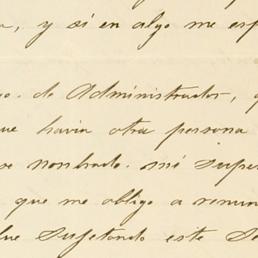 , y si en algo me esp
go. de Administrador, q
ue havia otra persona
se nombrado. mi super
que me obligo a renun
lue sugetando este Se